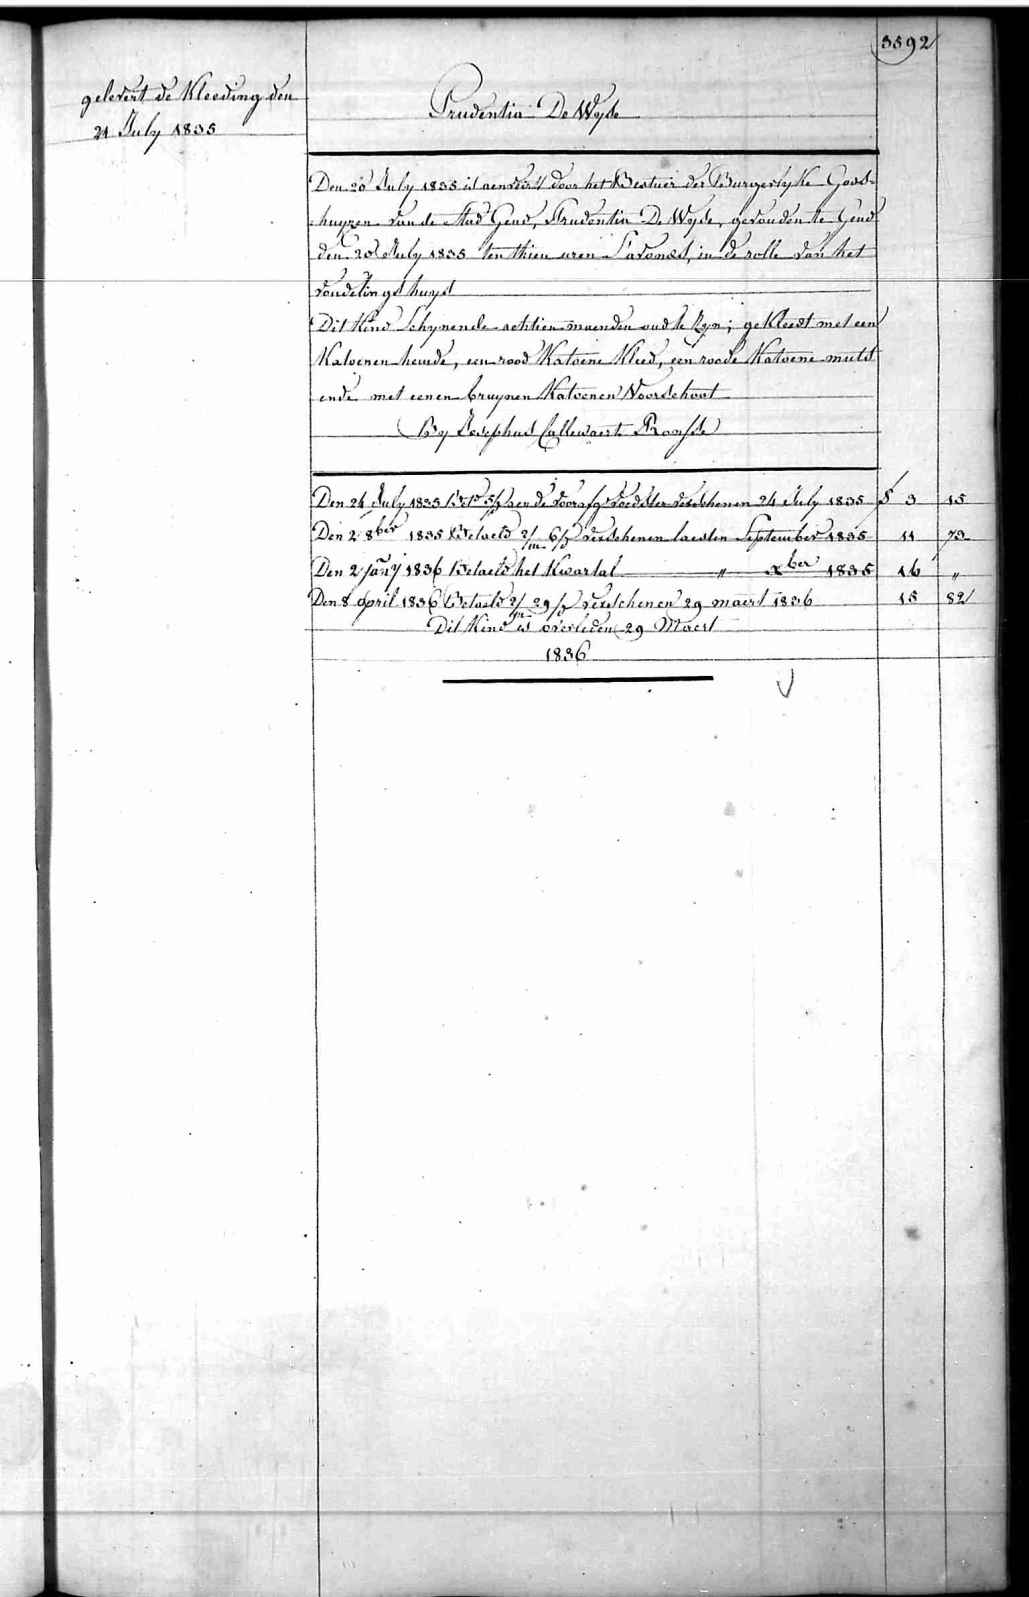 3592
gelevert de Kleeding den
21 July 1835
Prudentia De Wyde
Den 20 July 1835 is aenveird door het Bestuir der Burgerlyke Gods-
huyzen van de Stad Gend, Prudentia De Wyde, gevonden te Gend
den 20 July 1835 ten thien uren s'avonds, in de rolle van het
vondelings huys
Dit Kind Schynende achtien maenden oud te Zyn; gekleedt met een
Katoenen hemde, een rood Katoene Kleed, een roode Katoene muts
ende met eenen bruynen Katoenen Voorschoot
By Josephus Callewaert
Den 24 July 1835 aen de voedster verschenen 24 July 1835 3 15
Den 2 8ber 1835 Betaeld 2/m 6/d verschenen laesten September 1835 11 73
Den 2 Jany 1836 Betaeld het Kwartal " Xber 1835 16 "
Den 8 April 1836 Betaeld 2/m 29/d verschenen 29 maert 1836 15 82
Dit Kind is overleden 29 Maert
1836